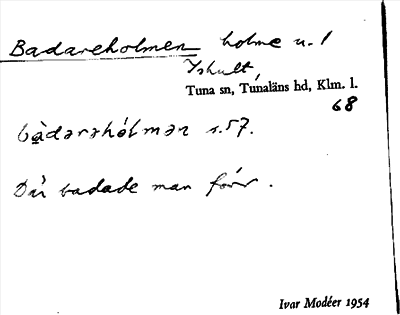 Badareholmen holme u. 1
Yxhult,
Tuna sn, Tunaläns hd, Klm. l.
68
bàdarəhólmən s. 57.
Där badade man förr.
Ivar Modéer 1954